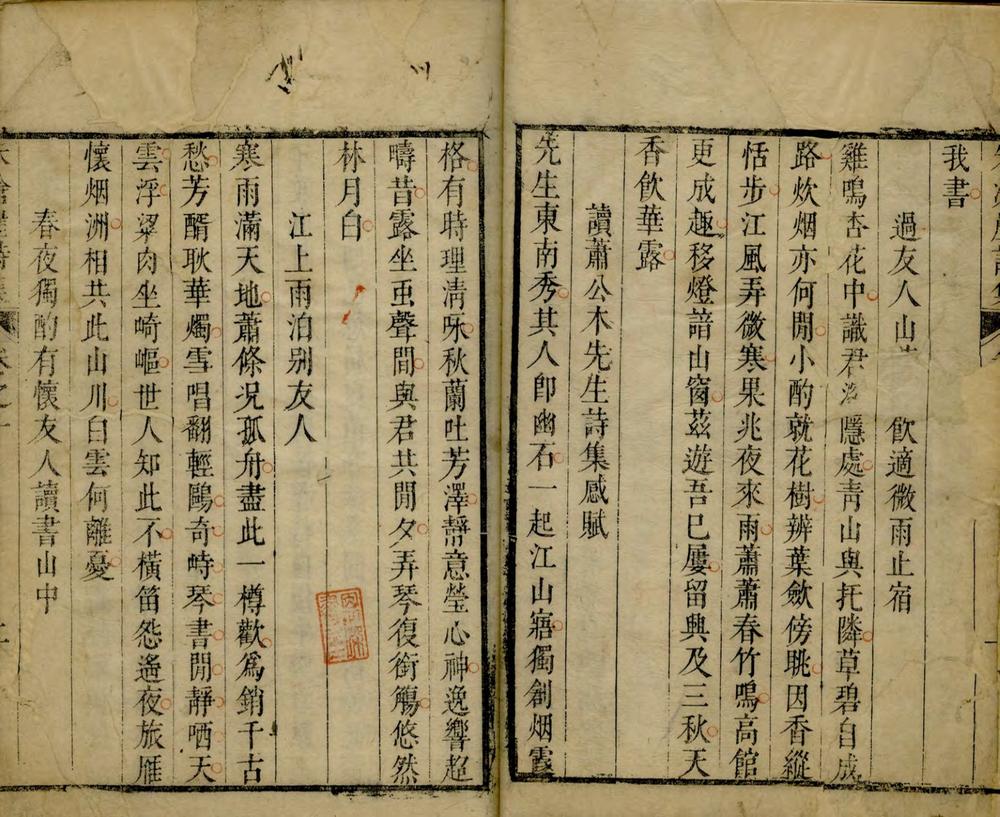 我書
過友人山 飲適微雨止宿
雞鳴杏花中識君 隱處青山與托隣草碧自成
路炊烟亦何閒小酌就花樹辨葉歛傍眺因香縱
恬步江風弄微寒果兆夜來雨蕭蕭春竹鳴高館
更成趣移燈諳山窗茲遊吾已屢留興及三秋天
香飲華露
讀蕭公木先生詩集感賦
先生東南秀其人卽幽石一起江山寤獨創烟霞
格有時理清咏秋蘭吐芳澤靜意瑩心神逸響超
疇昔露坐虫聲間與君共閒夕弄琴復銜觴悠然
林月白
江上雨泊别友人
寒雨滿天地蕭條况孤舟盡此一樽歡爲銷千古
愁芳醑耿華燭雪唱翻輕鷗奇峙琴書閒靜哂天
雲浮粱肉坐崎嶇世人知此不橫笛怨遙夜旅雁
懷烟洲相共此山川白雲何離憂
春夜獨酌有懷友人讀書山中